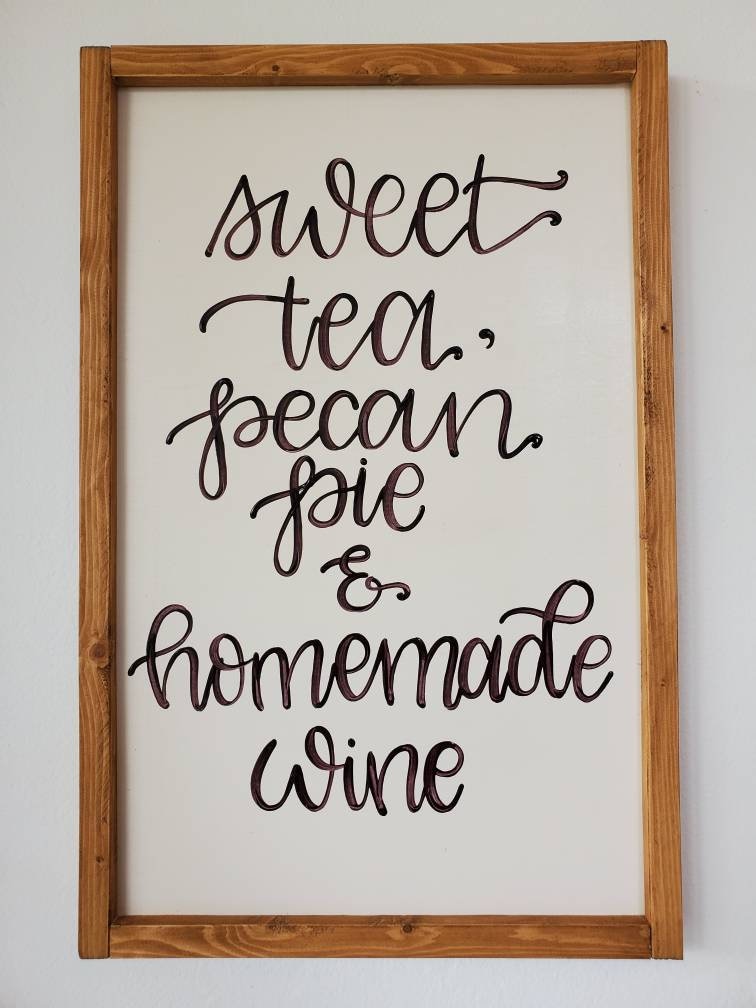 sweet
tea,
pecan
pie
&
homemade
wine